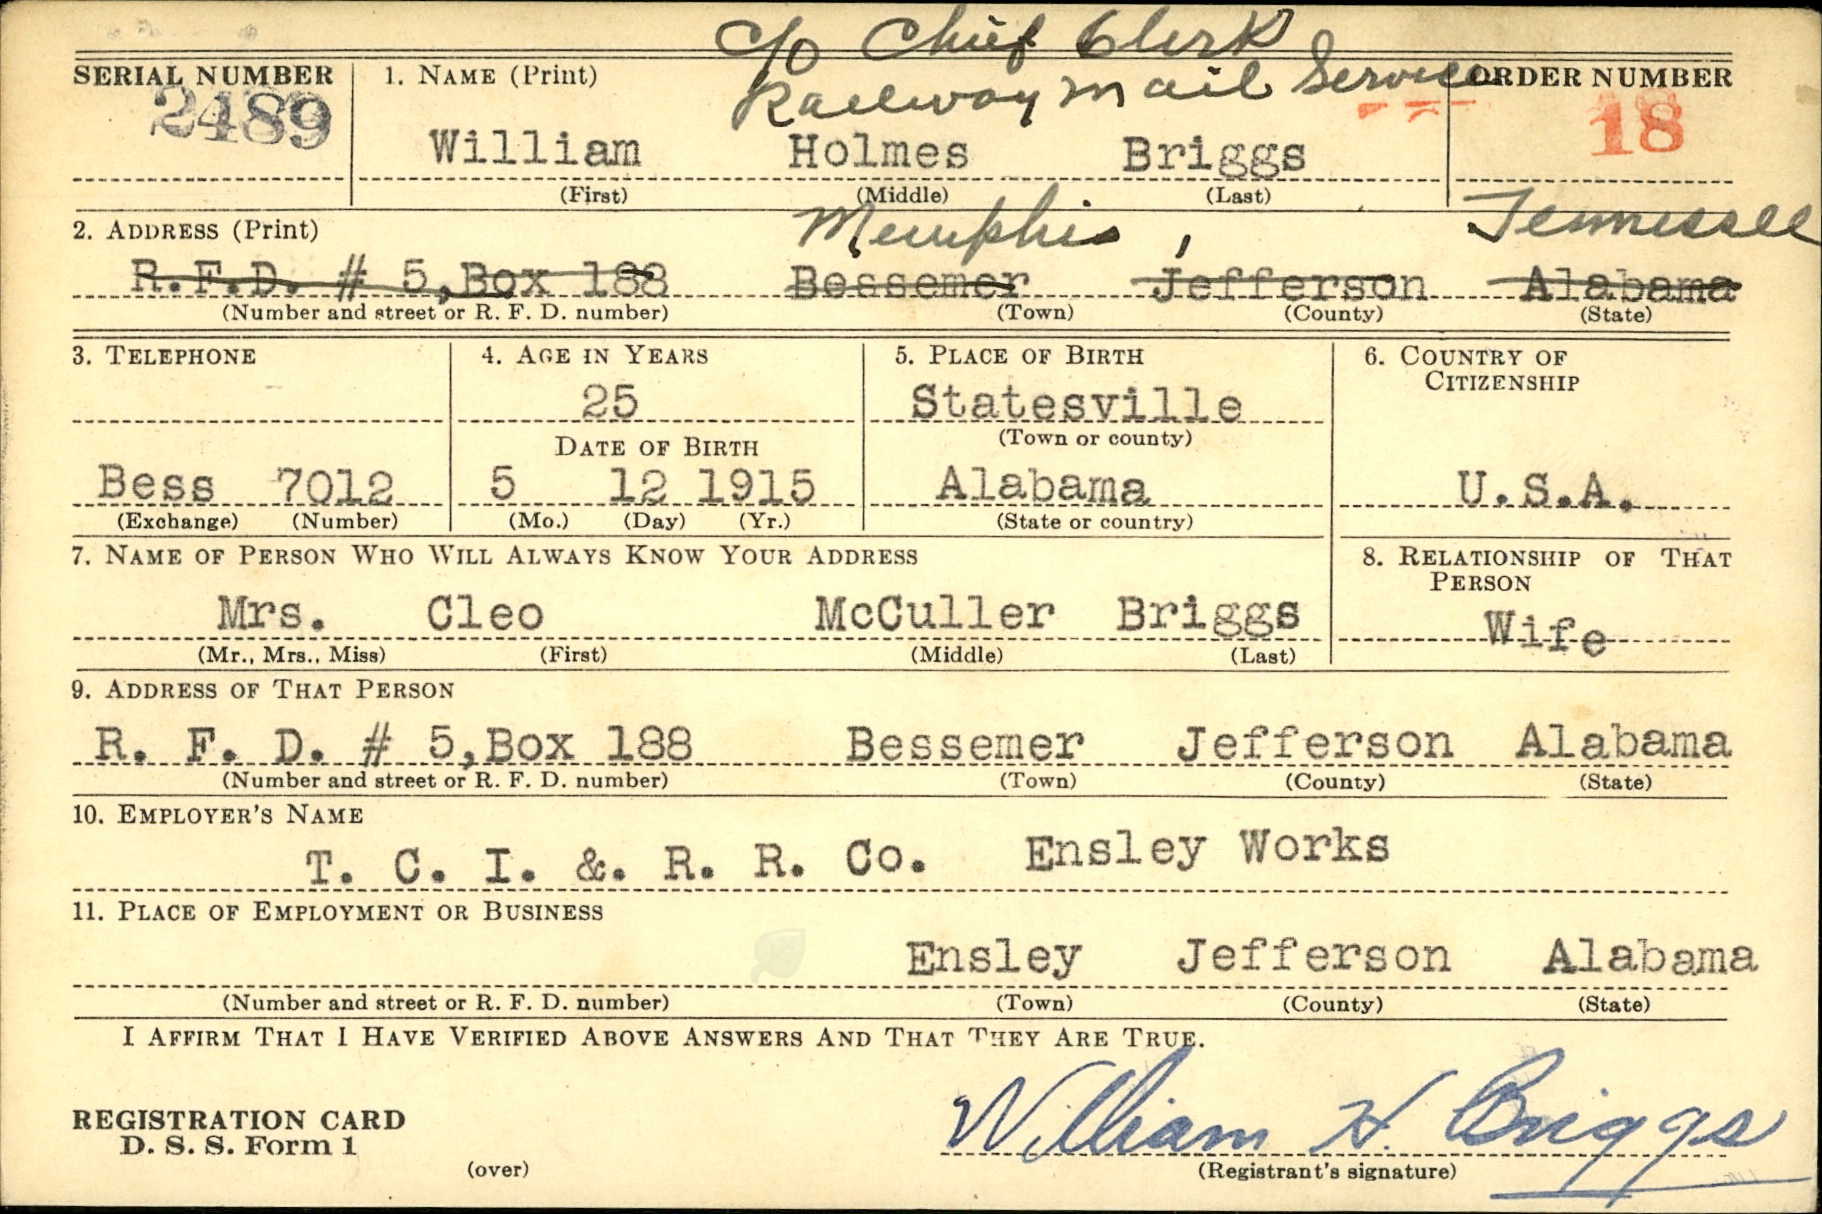 c/o Chief Clerk
Railway Mail Service
SERIAL NUMBER 1. NAME (Print) ORDER NUMBER
2489 William Holmes Briggs 18
(First) (Middle) (Last)
Memphis, Tennessee
2. ADDRESS (Print)
R.F.D. # 5,Box 188 Bessemer Jefferson Alabama
(Number and street or R. F. D. number) (Town) (County) (State)
3. TELEPHONE 4. AGE IN YEARS 5. PLACE OF BIRTH 6. COUNTRY OF CITIZENSHIP
25 Statesville
DATE OF BIRTH (Town or county)
Bess 7012 5 12 1915 Alabama U.S.A.
(Exchange) (Number) (Mo.) (Day) (Yr.) (State or country)
7. NAME OF PERSON WHO WILL ALWAYS KNOW YOUR ADDRESS 8. RELATIONSHIP OF THAT PERSON
Mrs. Cleo McCuller Briggs Wife
(Mr., Mrs., Miss) (First) (Middle) (Last)
9. ADDRESS OF THAT PERSON
R. F. D. # 5,Box 188 Bessemer Jefferson Alabama
(Number and street or R. F. D. number) (Town) (County) (State)
10. EMPLOYER'S NAME
T. C. I. &. R. R. Co. Ensley Works
11. PLACE OF EMPLOYMENT OR BUSINESS
Ensley Jefferson Alabama
(Number and street or R. F. D. number) (Town) (County) (State)
I AFFIRM THAT I HAVE VERIFIED ABOVE ANSWERS AND THAT THEY ARE TRUE.
REGISTRATION CARD
D. S. S. Form 1
(over)
William H. Briggs
(Registrant's signature)